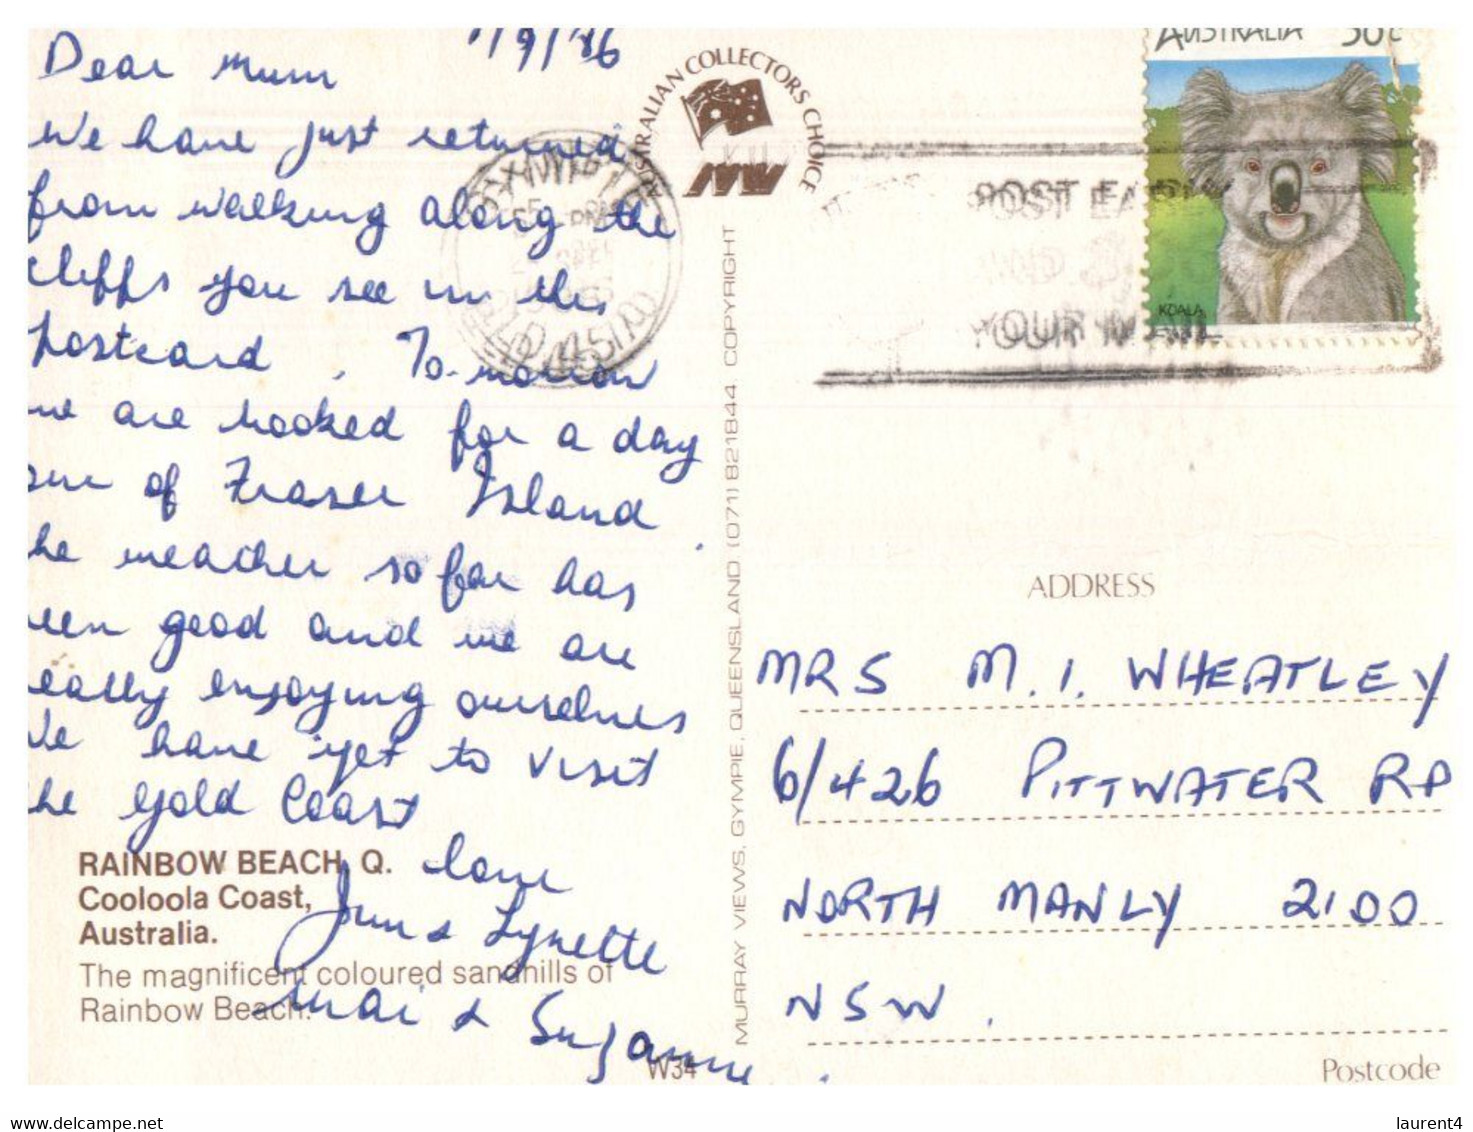 1/9/86
Dear Mum
We have just returned
from walking along the
cliffs you see in this
postcard. To-morrow
we are booked for a day
our of Fraser Island.
he weather so far has
een good and we are
eally enjoying ourselves
We have yet to visit
he Gold Coast
love
Jim & Lynette
Mai & Suzanne
RAINBOW BEACH, Q.
Cooloola Coast,
Australia.
The magnificent coloured sandhills of
Rainbow Beach.
W34
AUSTRALIAN COLLECTORS CHOICE
MURRAY VIEWS, GYMPIE, QUEENSLAND. (071) 821844. COPYRIGHT
AUSTRALIA 36c
KOALA
POST EARLY
YOUR MAIL
ADDRESS
MRS M.I. WHEATLEY
6/426 PITTWATER RD
NORTH MANLY 2100
NSW.
Postcode
www.delcampe.net
laurent4